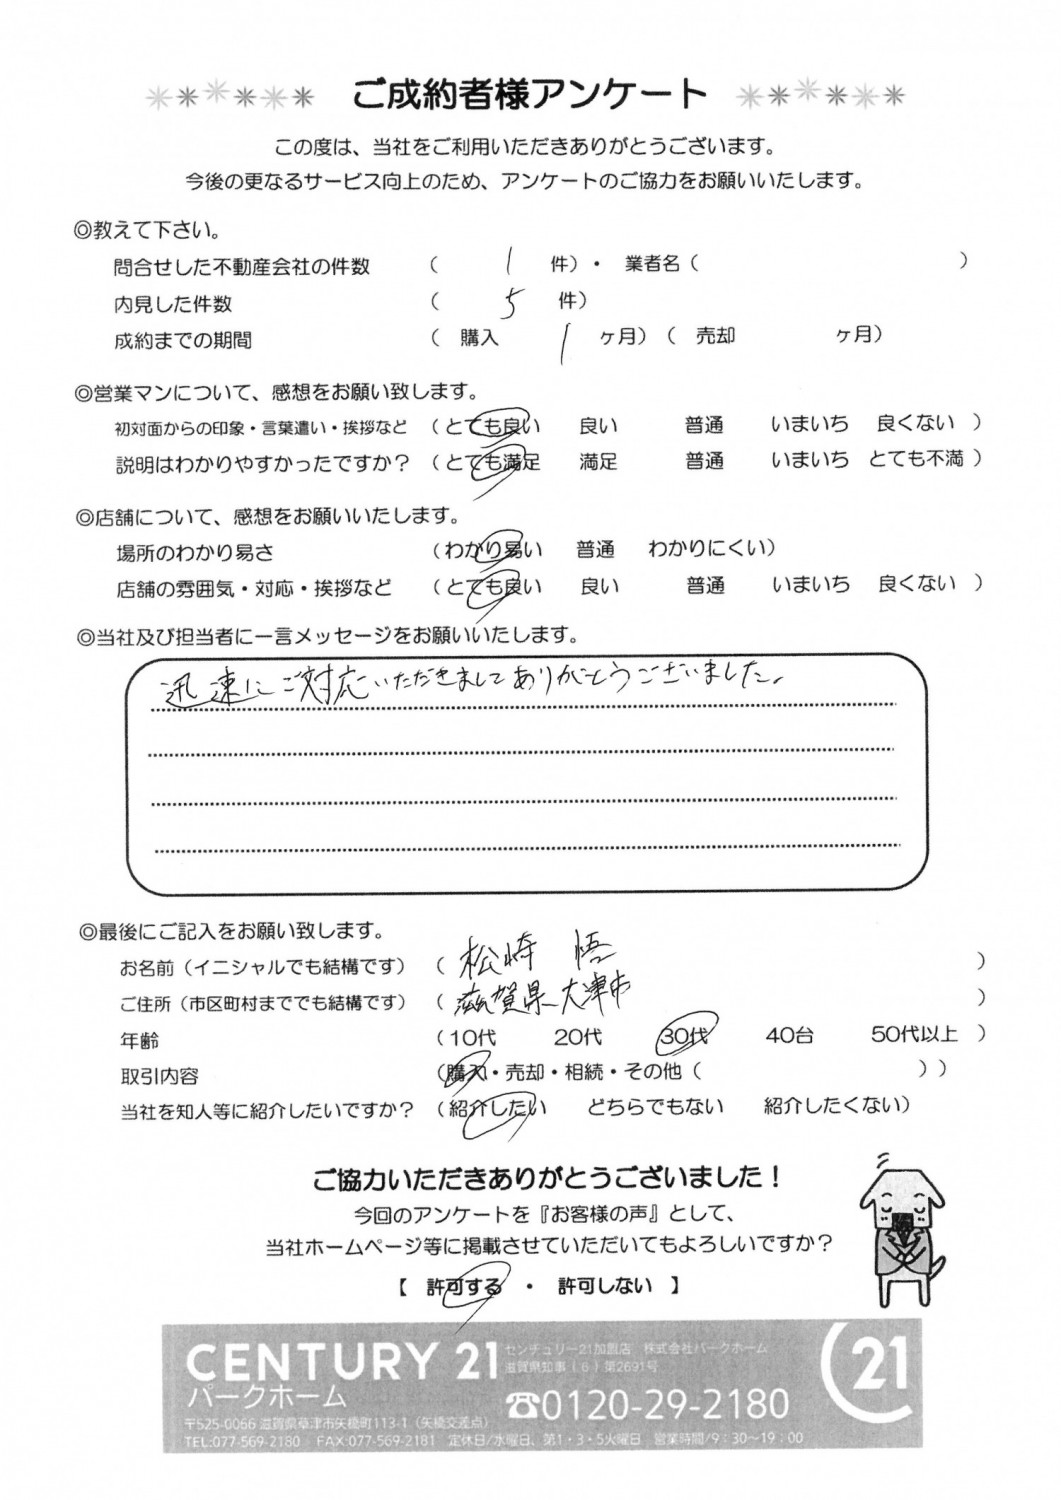 ご成約者様アンケート
この度は、当社をご利用いただきありがとうございます。
今後の更なるサービス向上のため、アンケートのご協力をお願いいたします。
◎教えて下さい。
問合せした不動産会社の件数 ( 1 件)・ 業者名 ( )
内見した件数 ( 5 件)
成約までの期間 ( 購入 1 ヶ月) ( 売却 ヶ月)
◎営業マンについて、感想をお願い致します。
初対面からの印象・言葉遣い・挨拶など (とても良い 良い 普通 いまいち 良くない )
説明はわかりやすかったですか? (とても満足 満足 普通 いまいち とても不満 )
◎店舗について、感想をお願いいたします。
場所のわかり易さ (わかり易い 普通 わかりにくい)
店舗の雰囲気・対応・挨拶など (とても良い 良い 普通 いまいち 良くない )
◎当社及び担当者に一言メッセージをお願いいたします。
迅速にご対応いただきましてありがとうございました。
◎最後にご記入をお願い致します。
お名前(イニシャルでも結構です) ( 松崎 悟 )
ご住所(市区町村まででも結構です) ( 滋賀県大津市 )
年齢 (10代 20代 30代 40台 50代以上 )
取引内容 (購入・売却・相続・その他 ( ) )
当社を知人等に紹介したいですか? (紹介したい どちらでもない 紹介したくない)
ご協力いただきありがとうございました!
今回のアンケートを『お客様の声』として、
当社ホームページ等に掲載させていただいてもよろしいですか?
【 許可する ・ 許可しない 】
CENTURY 21 センチュリー21加盟店 株式会社パークホーム
滋賀県知事(6)第2691号
パークホーム ☎0120-29-2180 21
〒525-0066 滋賀県草津市矢橋町113-1 (矢橋交差点)
TEL:077-569-2180 FAX:077-569-2181 定休日/水曜日、第1・3・5火曜日 営業時間/9:30~19:00